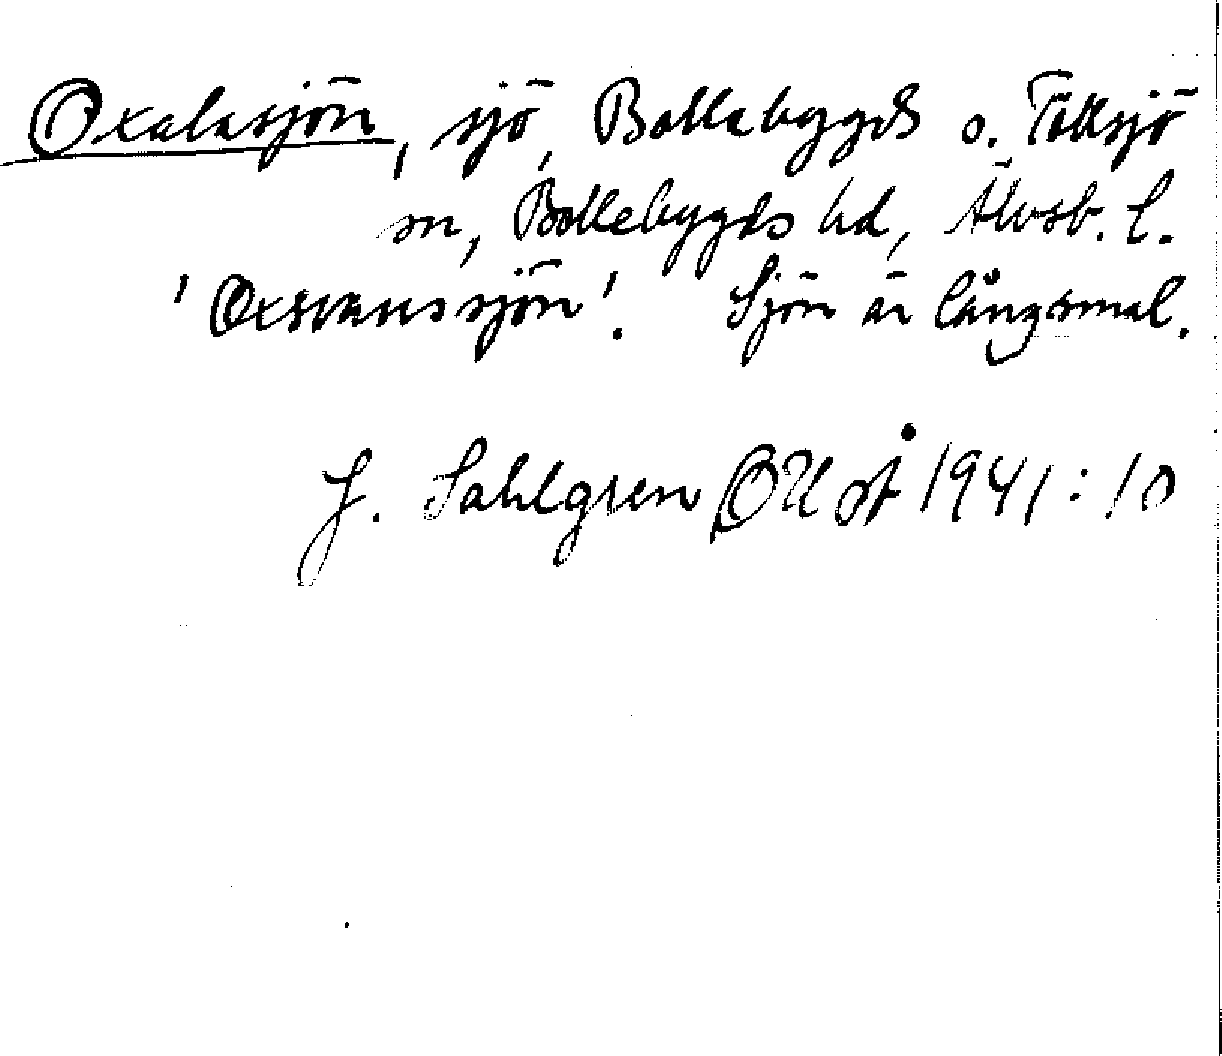 Oxalasjön, sjö, Bollebygds o. Töllsjö
sn, Bollebygds hd, Älvsb. l.
'Oxsvanssjön'. Sjön är långsmal.
J. Sahlgren OUoÅ 1941:10